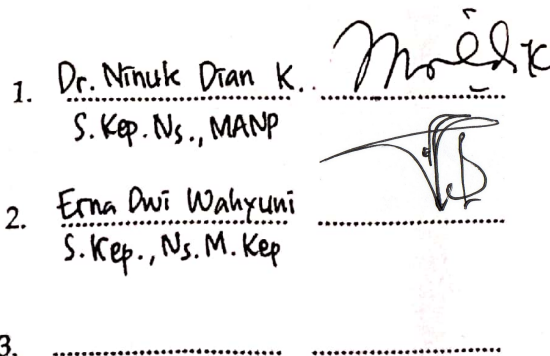 1. Dr. Ninuk Dian K. ........................
S. Kep. Ns., MANP
2. Erna Dwi Wahyuni ........................
S. Kep., Ns. M. Kep
3. ........................ ........................